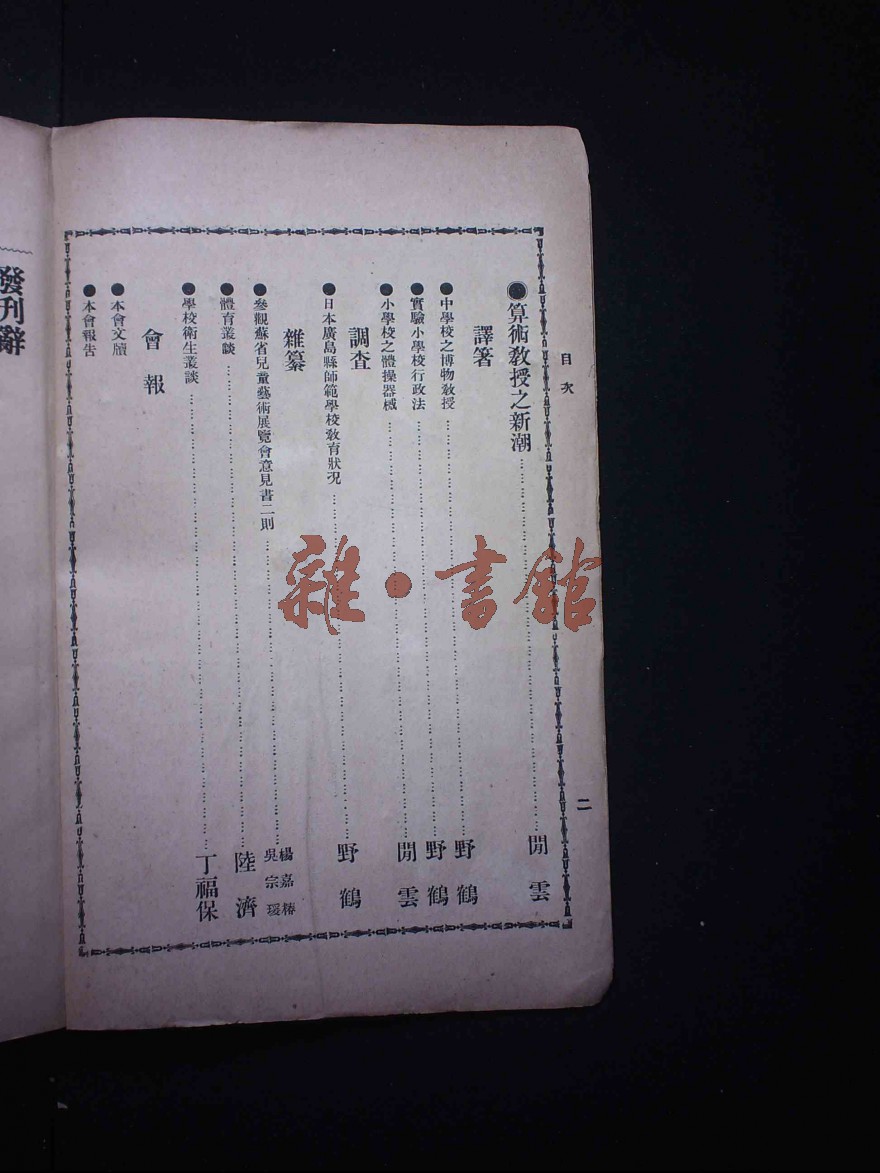 目次
二
●算術教授之新潮……閒雲
譯箸
●中學校之博物教授……野鶴
●實驗小學校行政法……野鶴
●小學校之體操器械……閒雲
調査
●日本廣島縣師範學校教育狀況……野鶴
雜纂
●參觀蘇省兒童藝術展覽會意見書二則……楊嘉椿 吳宗瑗
●體育叢談……陸濟
●學校衛生叢談……丁福保
會報
●本會文牘
●本會報告
發刊辭
雜·書館